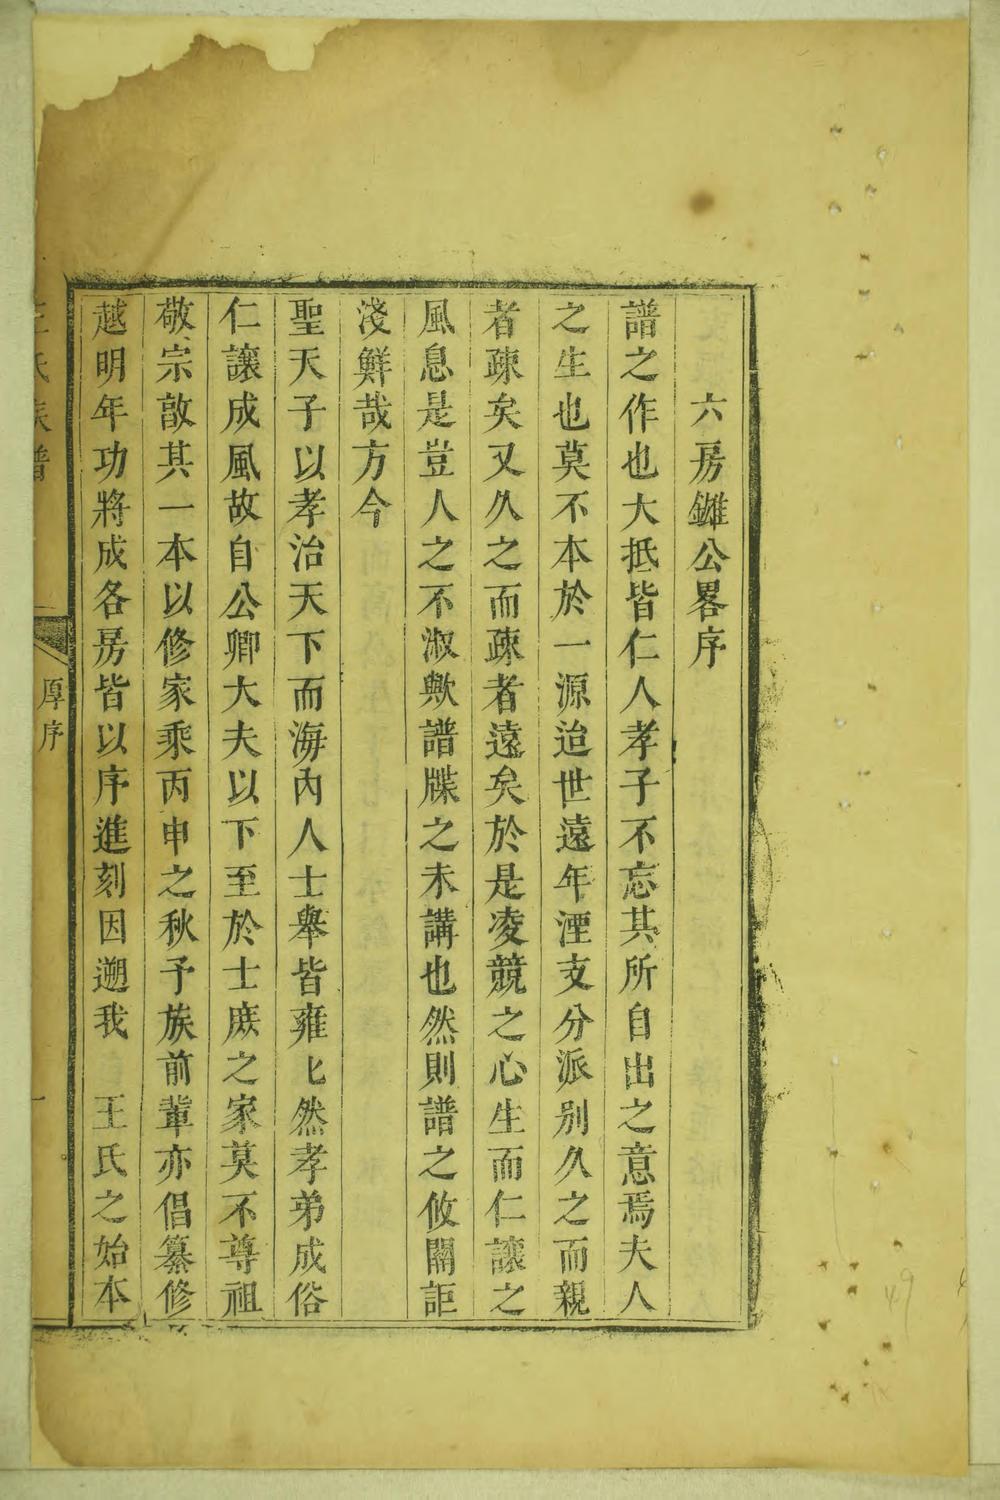 六房鏙公畧序
譜之作也大抵皆仁人孝子不忘其所自出之意焉夫人
之生也莫不本於一源迨世遠年湮支分派别久之而親
者疎矣又久之而疎者遠矣於是凌競之心生而仁讓之
風息是豈人之不淑歟譜牒之未講也然則譜之攸關詎
淺鮮哉方今
聖天子以孝治天下而海內人士舉皆雍匕然孝弟成俗
仁讓成風故自公卿大夫以下至於士庶之家莫不尊祖
敬宗敦其一本以修家乘丙申之秋予族前輩亦倡纂修
越明年功將成各房皆以序進刻因遡我 王氏之始本
王氏族譜
厚序